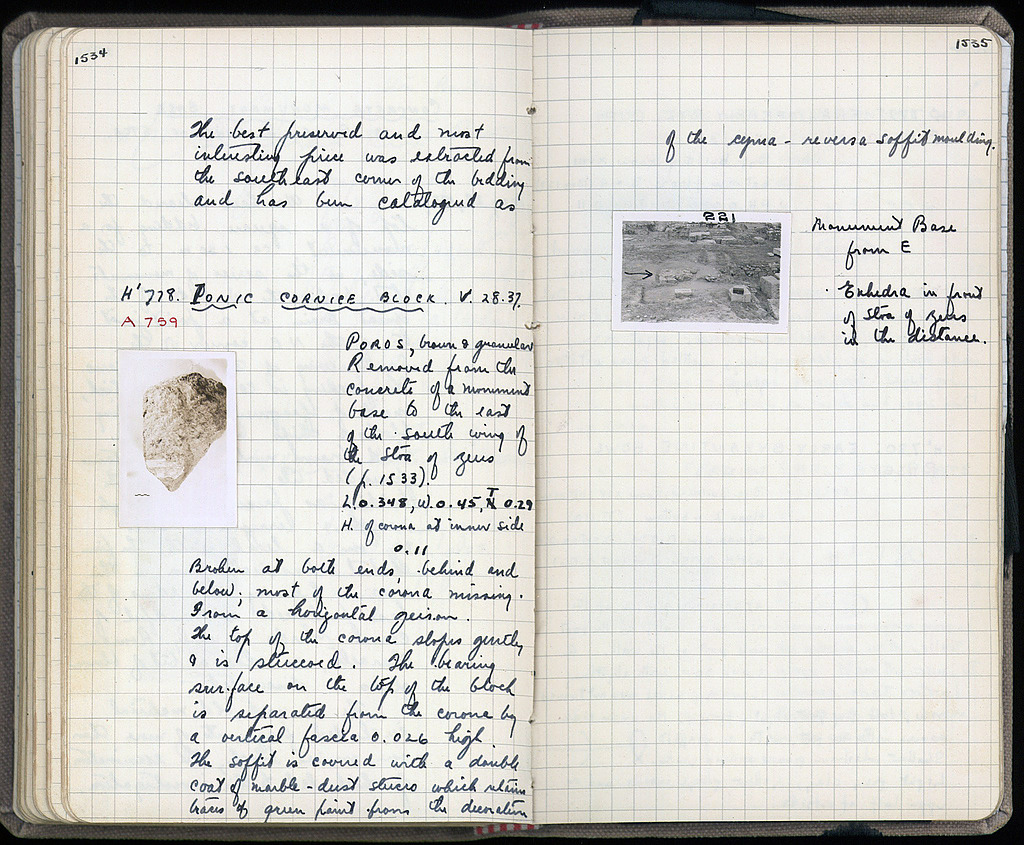 1534
The best preserved and most
interesting piece was extracted from
the southeast corner of the bedding
and has been catalogued as
H' 778. IONIC CORNICE BLOCK. V. 28.37.
A 759
POROS, brown & granular
Removed from the
concrete of a monument
base to the east
of the south wing of
the Stoa of Zeus
(p. 1533).
L. 0.348, W. 0.45, TH 0.29
H. of corona at inner side
0.11
Broken at both ends, behind and
below; most of the corona missing.
From a horizontal geison.
The top of the corona slopes gently
& is stuccoed. The bearing
surface on the top of the block
is separated from the corona by
a vertical fascia 0.026 high.
The soffit is covered with a double
coat of marble-dust stucco which retains
traces of green paint from the decoration
1535
of the cyma-reversa soffit moulding.
221
Monument Base
from E
Exhedra in front
of Stoa of Zeus
in the distance.